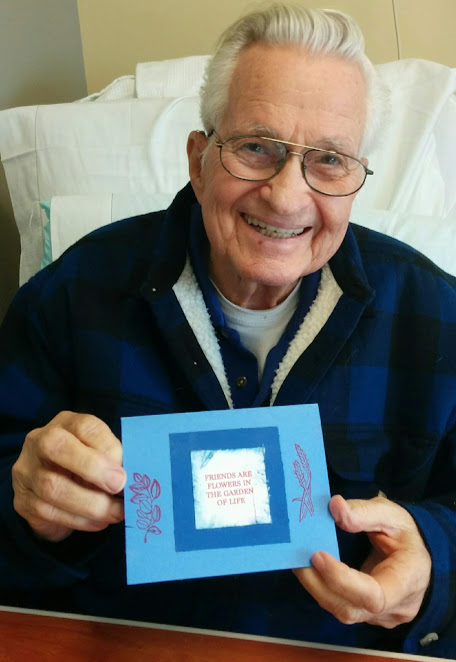 FRIENDS ARE
FLOWERS IN
THE GARDEN
OF LIFE